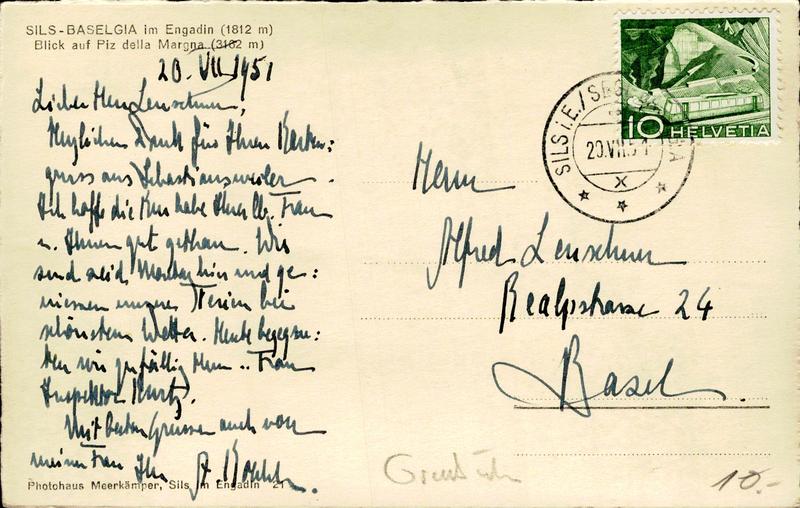 SILS-BASELGIA im Engadin (1812 m)
Blick auf Piz della Margna (3162 m)
20. VII 1951
Lieber Herr Leuschner,
Herzlichen Dank für Ihren Karten:
gruss aus Sebastiansweiler.
Ich hoffe die Kur habe Ihrer lb. Frau
u. Ihnen gut gethan. Wir
sind seit Montag hier und ge:
niessen unsere Ferien bei
schönstem Wetter. Heute begegne:
ten wir zufällig Herrn u. Frau
Inspektor Kurtz.
Mit besten Grüssen auch von
meiner Frau Ihr A.
Photohaus Meerkämper, Sils im Engadin 21
10 HELVETIA
SILS i.E./SEGL
20.VII.51
X
Herrn
Alfred Leuschner
Realpstrasse 24
Basel.
10.-